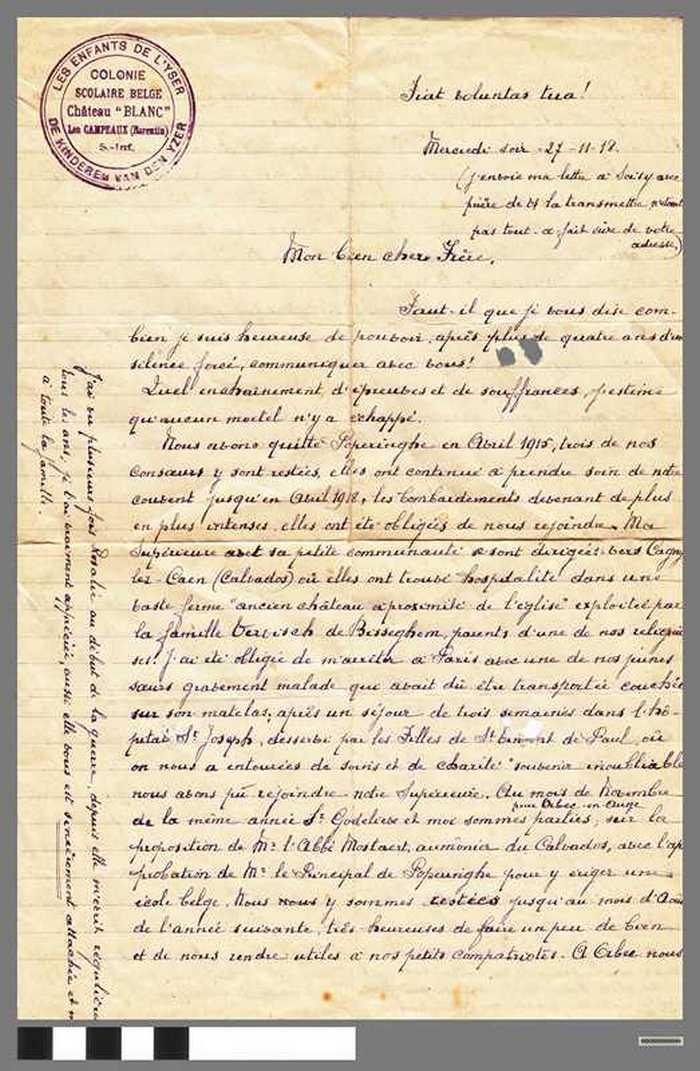 LES ENFANTS DE L'YSER
COLONIE
SCOLAIRE BELGE
Château "BLANC"
Les CAMPEAUX (Florentin)
S.-Inf.
DE KINDEREN VAN DEN YZER
Fiat voluntas tua!
Mercredi soir 27-11-18.
(J'envoie ma lettre à Soisy avec
prière de la transmettre n'étant
pas tout-à-fait sûre de votre
adresse)
Mon bien cher Frère,
Faut-il que je vous dise com-
bien je suis heureuse de pouvoir, après plus de quatre ans d'un
silence forcé, communiquer avec vous!
Quel enchaînement d'épreuves et de souffrances, j'estime
qu'aucun mortel n'y a échappé.
Nous avons quitté Poperinghe en Avril 1915, trois de nos
consœurs y sont restées, elles ont continué à prendre soin de notre
couvent jusqu'en Avril 1918, les bombardements devenant de plus
en plus intenses, elles ont été obligées de nous rejoindre. Ma
Supérieure avec sa petite communauté se sont dirigées vers Cagny
les-Caen (Calvados) où elles ont trouvé hospitalité dans une
vaste ferme "ancien château à proximité de l'église" exploitée par
la famille Vervisch de Bisseghem, parents d'une de nos religieu
ses! J'ai été obligée de m'arrêter à Paris avec une de nos jeunes
sœurs gravement malade que avait dû être transportée couchée
sur son matelas, après un séjour de trois semaines dans l'hô-
pital St Joseph, desservi par les Filles de St Vincent de Paul, où
on nous a entourées de soins et de charité "souvenir inoubliable"
nous avons pu rejoindre notre Supérieure. Au mois de Novembre
pour Orbec-en-Auge
de la même année Sr Godelieve et moi sommes parties, sur la
proposition de Mr l'Abbé Mostaert, aumônier du Calvados, avec l'ap
probation de Mr le Principal de Poperinghe pour y ériger une
école belge. Nous nous y sommes restées jusqu'au mois d'Août
de l'année suivante, très heureuses de faire un peu de bien
et de nous rendre utiles à nos petits compatriotes. A Orbec nous
J'ai vu plusieurs fois Rosalie au début de la guerre, depuis elle m'écrit régulière
tous les ans, je l'ai vraiment appréciée, aussi elle vous est sincèrement attachée et
à toute la famille.